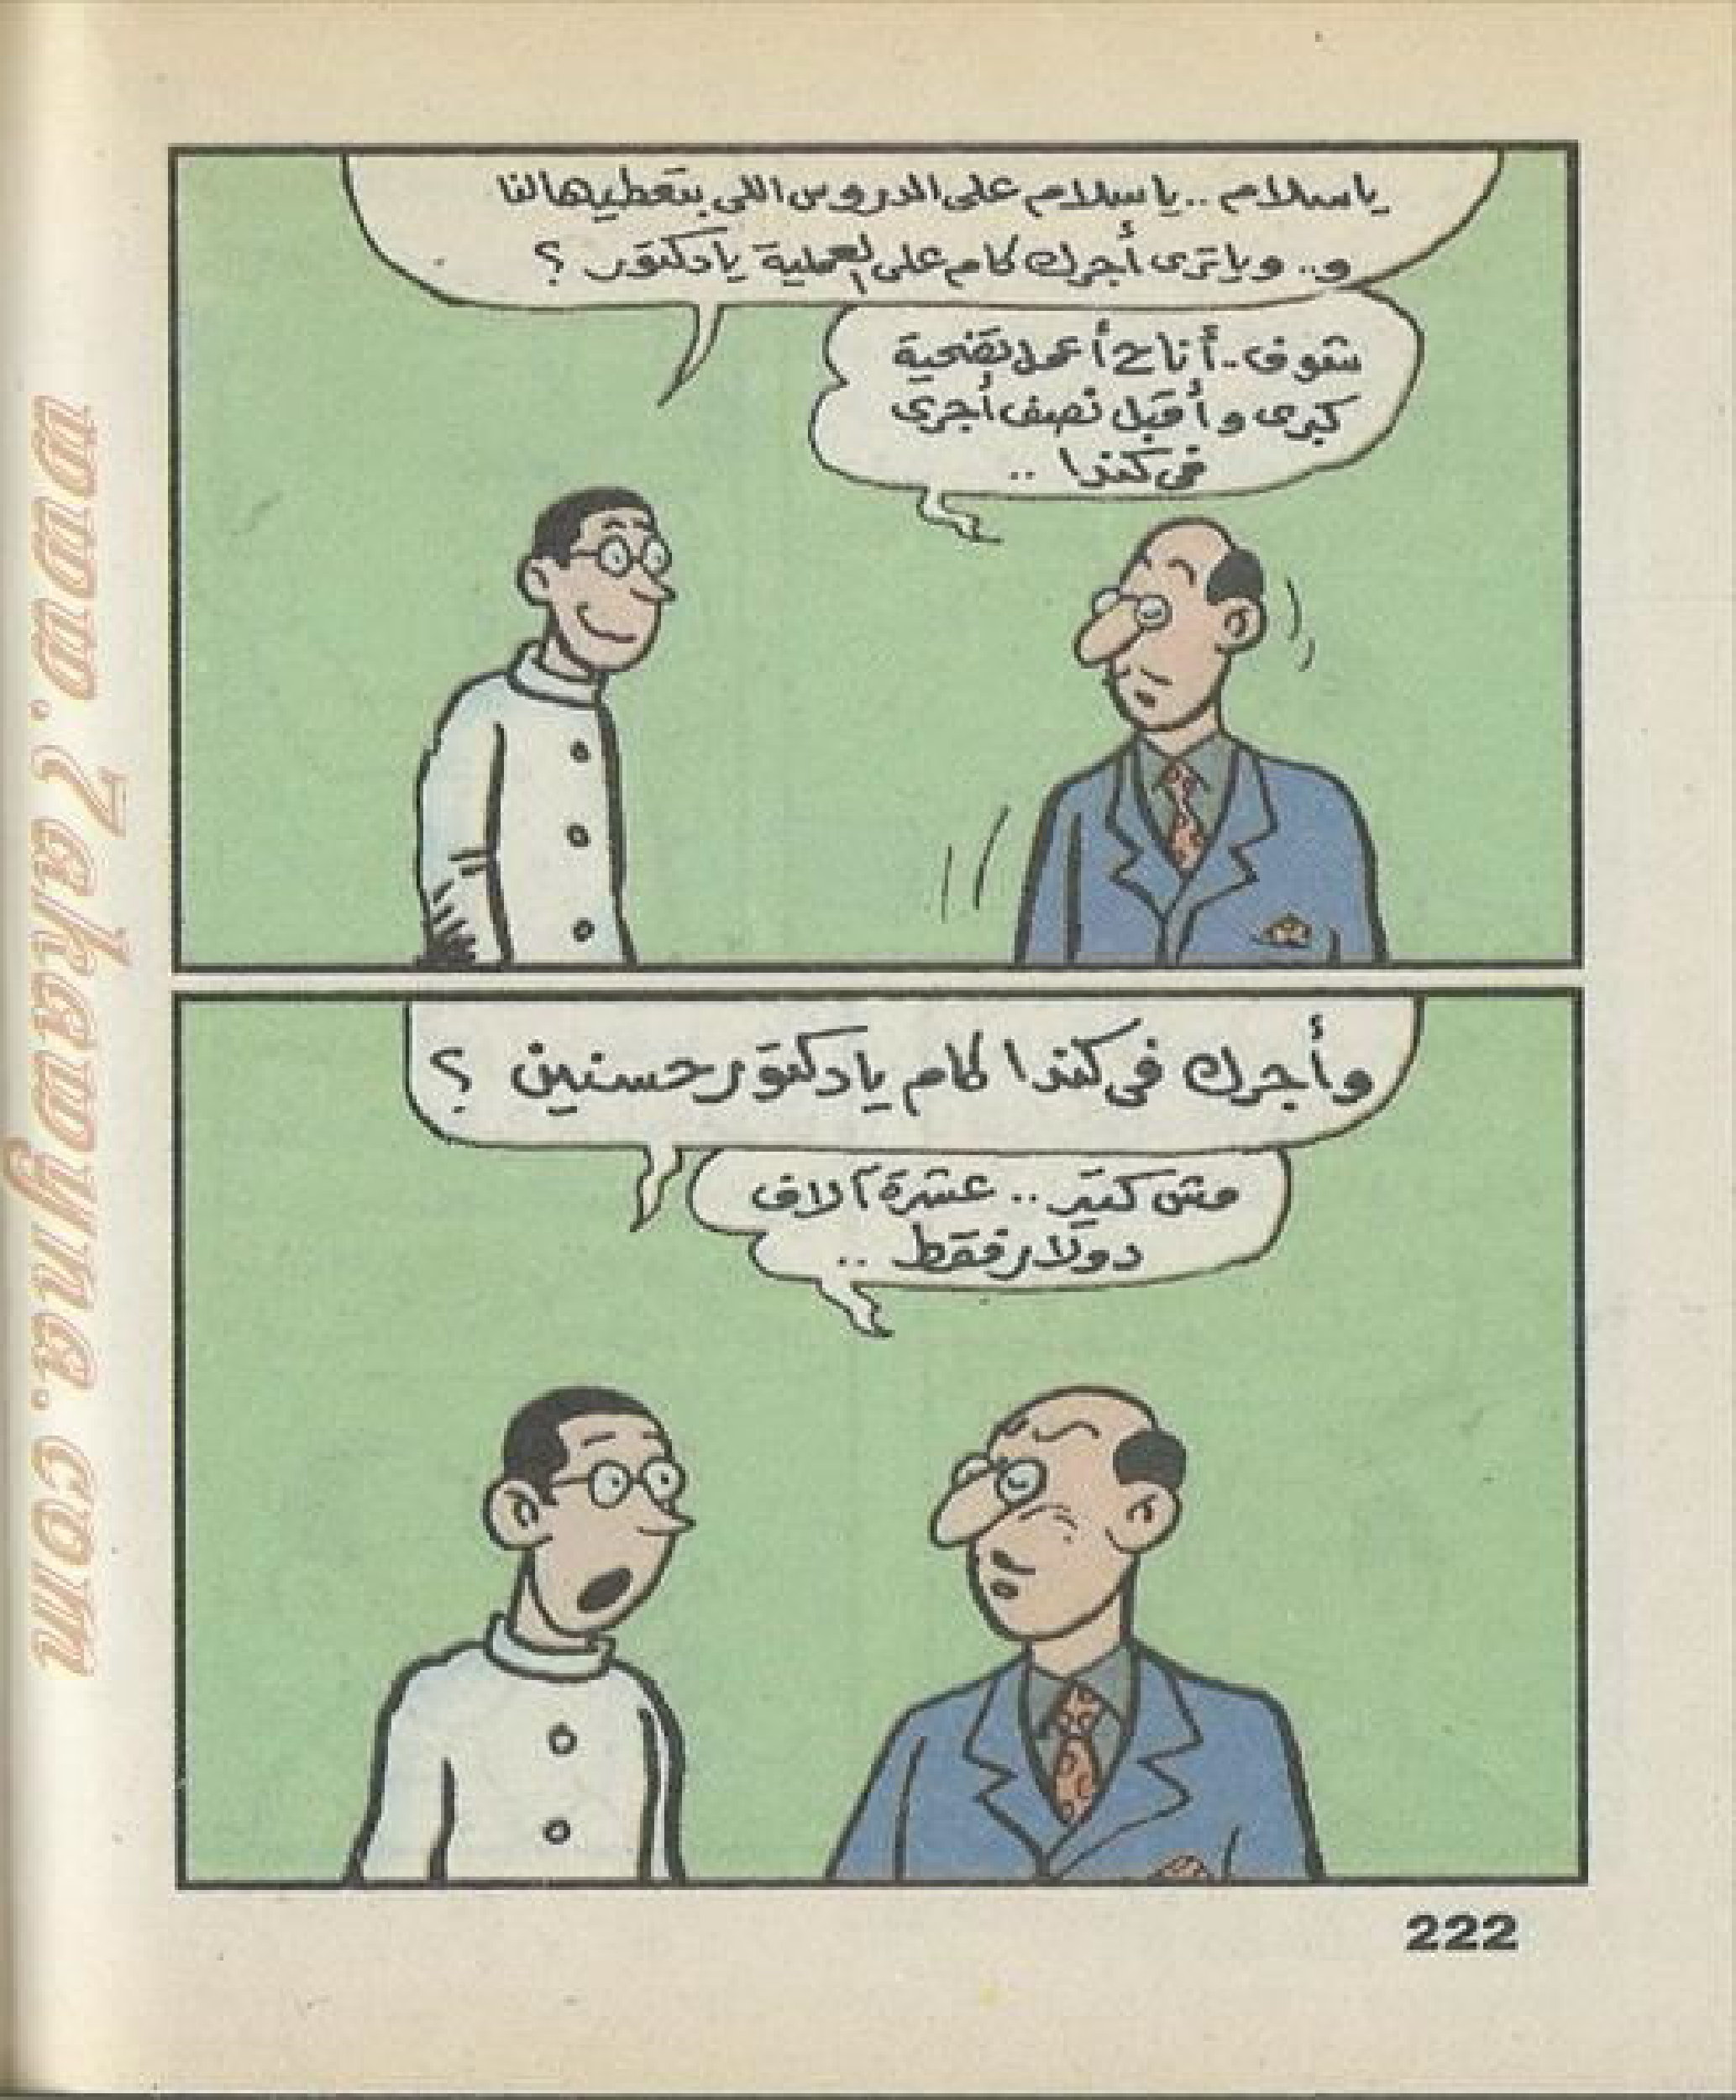 ياسلام .. ياسلام على الدروس اللى بتعطيهالنا
و.. وياترى أجرك كام على العملية يادكتور ؟
شوف .. أنا ح أعمل تضحية
كبرى وأقبل نصف أجرى
فى كندا ..
وأجرك فى كندا كام يادكتور حسنين ؟
مش كتير .. عشرة آلاف
دولار فقط ..
222
www.7akawyna.com